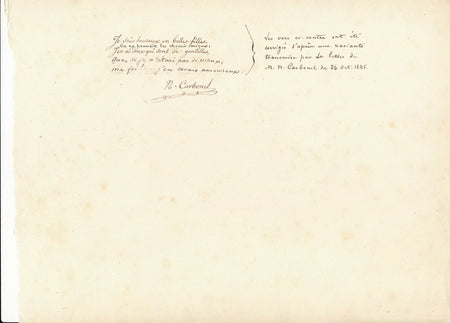 Je suis heureux en belles-filles,
J'en ai deux qui sont si gentilles,
Que, si je n'étais pas si vieux,
ma foi! j'en serais amoureux.
N. Carbonel
Les vers ci-contre ont été
corrigés d'après une variante
transmise par la lettre de
M. N. Carbonel du 26 oct.